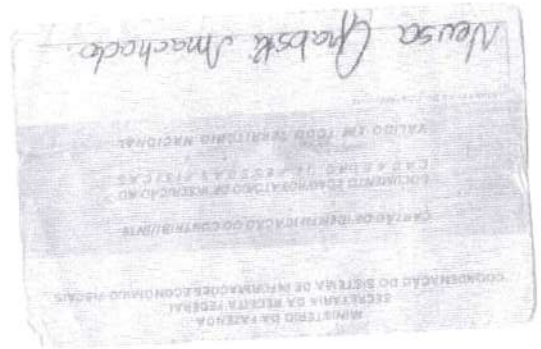 MINISTÉRIO DA FAZENDA
SECRETARIA DA RECEITA FEDERAL
COORDENAÇÃO DO SISTEMA DE INFORMAÇÕES ECONÔMICO FISCAIS
CARTÃO DE IDENTIFICAÇÃO DO CONTRIBUINTE
DOCUMENTO COMPROBATÓRIO DE INSCRIÇÃO NO
CADASTRO DE PESSOAS FÍSICAS
VÁLIDO EM TODO TERRITÓRIO NACIONAL
Neusa Grabski Machado